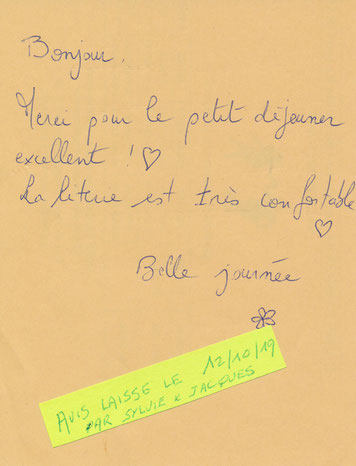 Bonjour,
Merci pour le petit déjeuner
excellent ! ♡
La literie est très confortable
♡
Belle journée
AVIS LAISSE LE 12/10/19
PAR SYLVIE & JACQUES